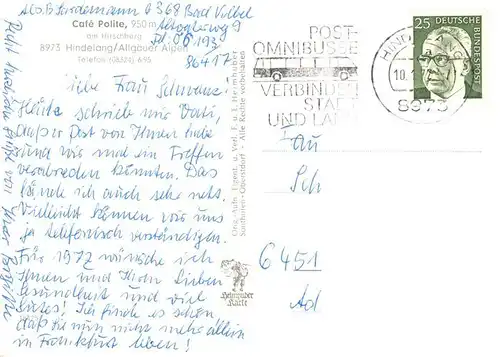 Abs. B. Lindemann 6368 Bad Vilbel
Café Polite, 950 m
am Hirschberg
8973 Hindelang/Allgäuer Alpen
Telefon (08324) 695
Tel. 06193
86417
Liebe Frau
Heute schrieb mir Vati,
daß er Post von Ihnen habe
und wir mal ein Treffen
verabreden könnten. Das
fände ich auch sehr nett.
Vielleicht können wir uns
ja telefonisch verständigen.
Für 1972 wünsche ich
Ihnen und Ihren Lieben
Gesundheit und viel
Gutes! Ich finde es schön
daß Sie nun nicht mehr allein
in Frankfurt leben!
Recht herzliche Grüße von Ihrer Brigitte
Orig.-Aufn. Eigent. u. Verl. E. u. E. Heimhuber
Sonthofen-Oberstdorf - Alle Rechte vorbehalten
Heimhuber
Karte
POST-
OMNIBUSSE
VERBINDEN
STADT
UND LAND
HINDELANG
8973
25 DEUTSCHE
BUNDESPOST
Frau
Sch
6451
Ad